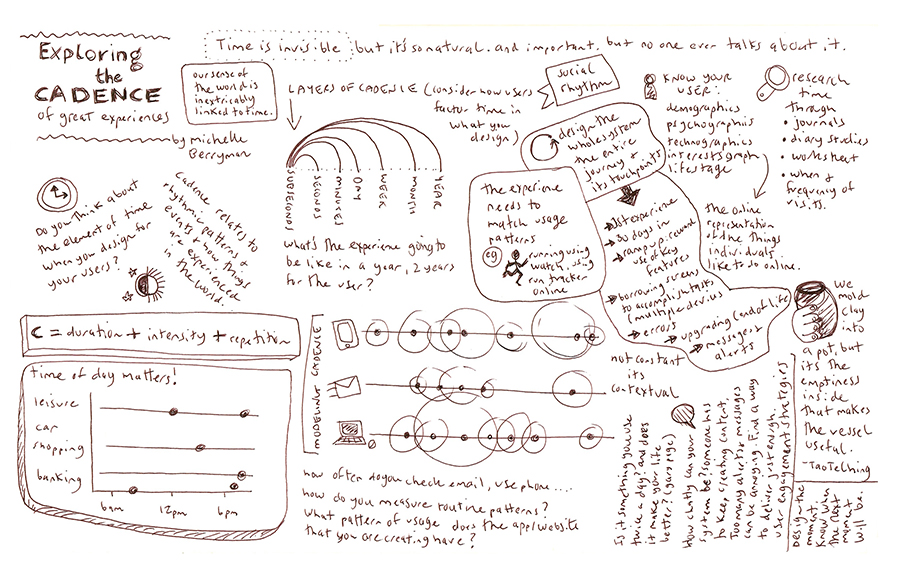 Exploring
the
CADENCE
of great experiences
by michelle
Berryman
Time is invisible but it's so natural. and important. but no one ever talks about it.
our sense of
the world is
inextricably
linked to time.
Do you think about
the element of time
when you design for
your users?
Cadence relates to
rhythmic patterns &
events & how things
are experienced
in the world.
LAYERS OF CADENCE (consider how users
factor time in
what you
design)
SUBSECONDS
SECONDS
MINUTES
DAY
WEEK
MONTH
YEAR
what's the experience going to
be like in a year, 2 years
for the user?
social
rhythm
design the
whole system
the entire
journey +
its touchpoints
the experience
needs to
match usage
patterns
eg
running using
watch, using
run tracker
online
1st experience
30 days in
ramp up, reward
use of key
features
borrowing screens
to accomplish tasks
(multiple devices
errors
upgrading (end of life
messages +
alerts
KNOW YOUR
USER:
demographics
psychographics
technographics
interests graph
lifestage
the online
representation
of the things
individuals
like to do online.
research
time
through
• journals
• diary studies
• worksheet
• when &
frequency of
visits.
C = duration + intensity + repetition
time of day matters!
leisure
car
shopping
banking
6am
12pm
6pm
MODELING CADENCE
how often do you check email, use phone....
how do you measure routine patterns?
What pattern of usage does the app/website
that you are creating have?
not constant
its
contextual
Is it something you use
twice a day? and does
it make your life
better? (
How chatty can your
system be? Someone has
to keep creating content.
Too many alerts & messages
can be annoying. Find a way
to deliver just enough.
user engagement strategies
We
mold
clay
into
a pot, but
its the
emptiness
inside
that makes
the vessel
useful.
- Tao Te Ching
Design the
moment.
Know when
the next
moment
will be.